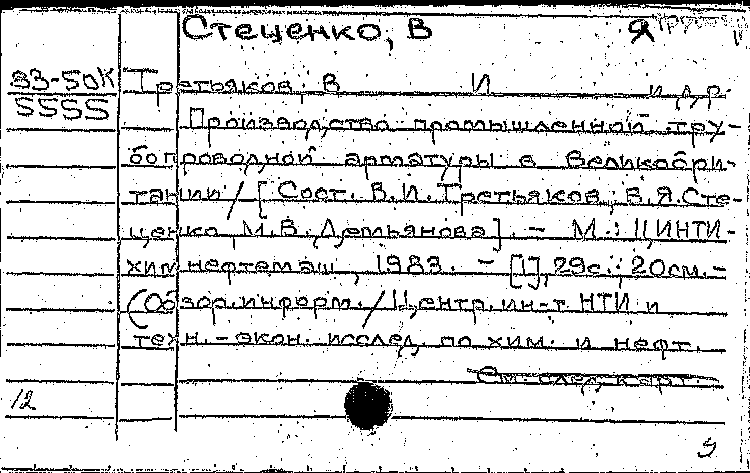 Стеценко, В Я
33-50К Третьяков, В И и др.
5555
Производство промышленной тру-
бопроводной арматуры в Великобри-
тании / [Сост. В.И. Третьяков, В.Я. Сте-
ценко, М.В. Демьянова]. - М.: ЦИНТИ-
химнефтемаш, 1983. - [1], 29с.; 20см. -
(Обзор. информ. / Центр. ин-т НТИ и
техн.-экон. исслед. по хим. и нефт.
См. след. карт.
12
9